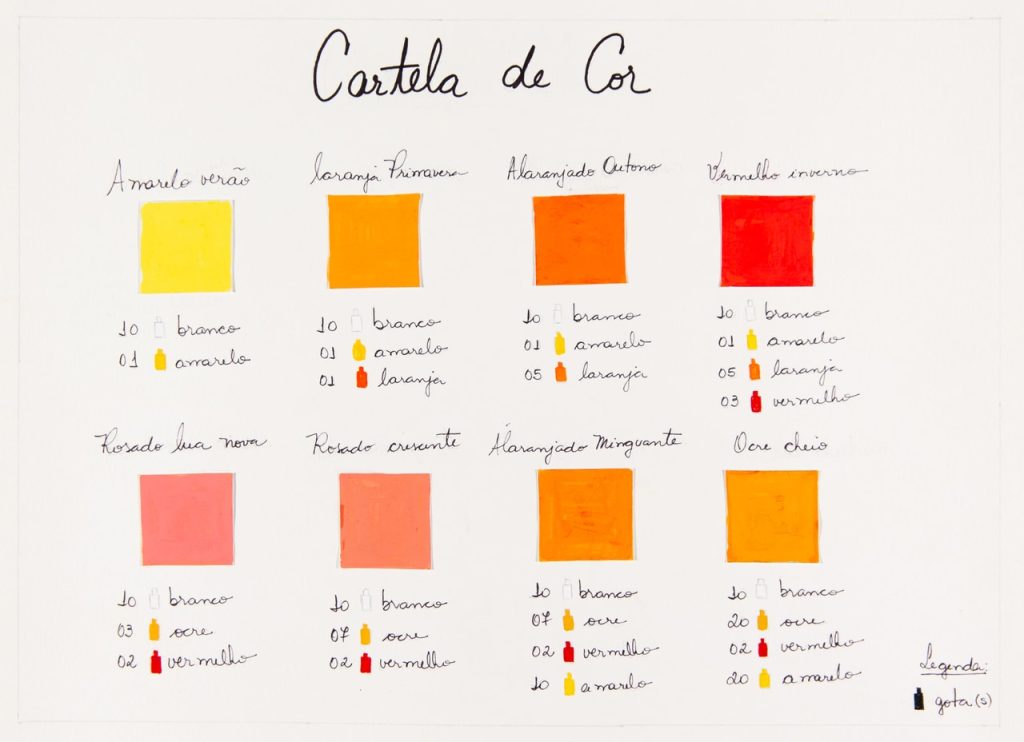 Cartela de Cor
Amarelo verão
10 branco
01 amarelo
laranja Primavera
10 branco
01 amarelo
01 laranja
Alaranjado Outono
10 branco
01 amarelo
05 laranja
Vermelho inverno
10 branco
01 amarelo
05 laranja
03 vermelho
Rosado lua nova
10 branco
03 ocre
02 vermelho
Rosado crescente
10 branco
07 ocre
02 vermelho
Alaranjado Minguante
10 branco
07 ocre
02 vermelho
10 amarelo
Ocre cheio
10 branco
20 ocre
02 vermelho
20 amarelo
Legenda:
gota(s)